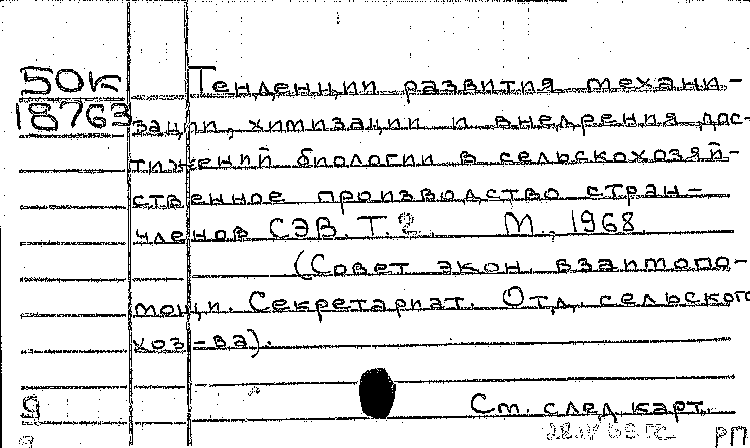 50к
18763
Тенденции развития механи-
зации, химизации и внедрения дос-
тижений биологии в сельскохозяй-
ственное производство стран-
членов СЭВ. Т. 2. М., 1968.
(Совет экон. взаимопо-
мощи. Секретариат. Отд. сельского
хоз-ва).
g
См. след. карт.
РП